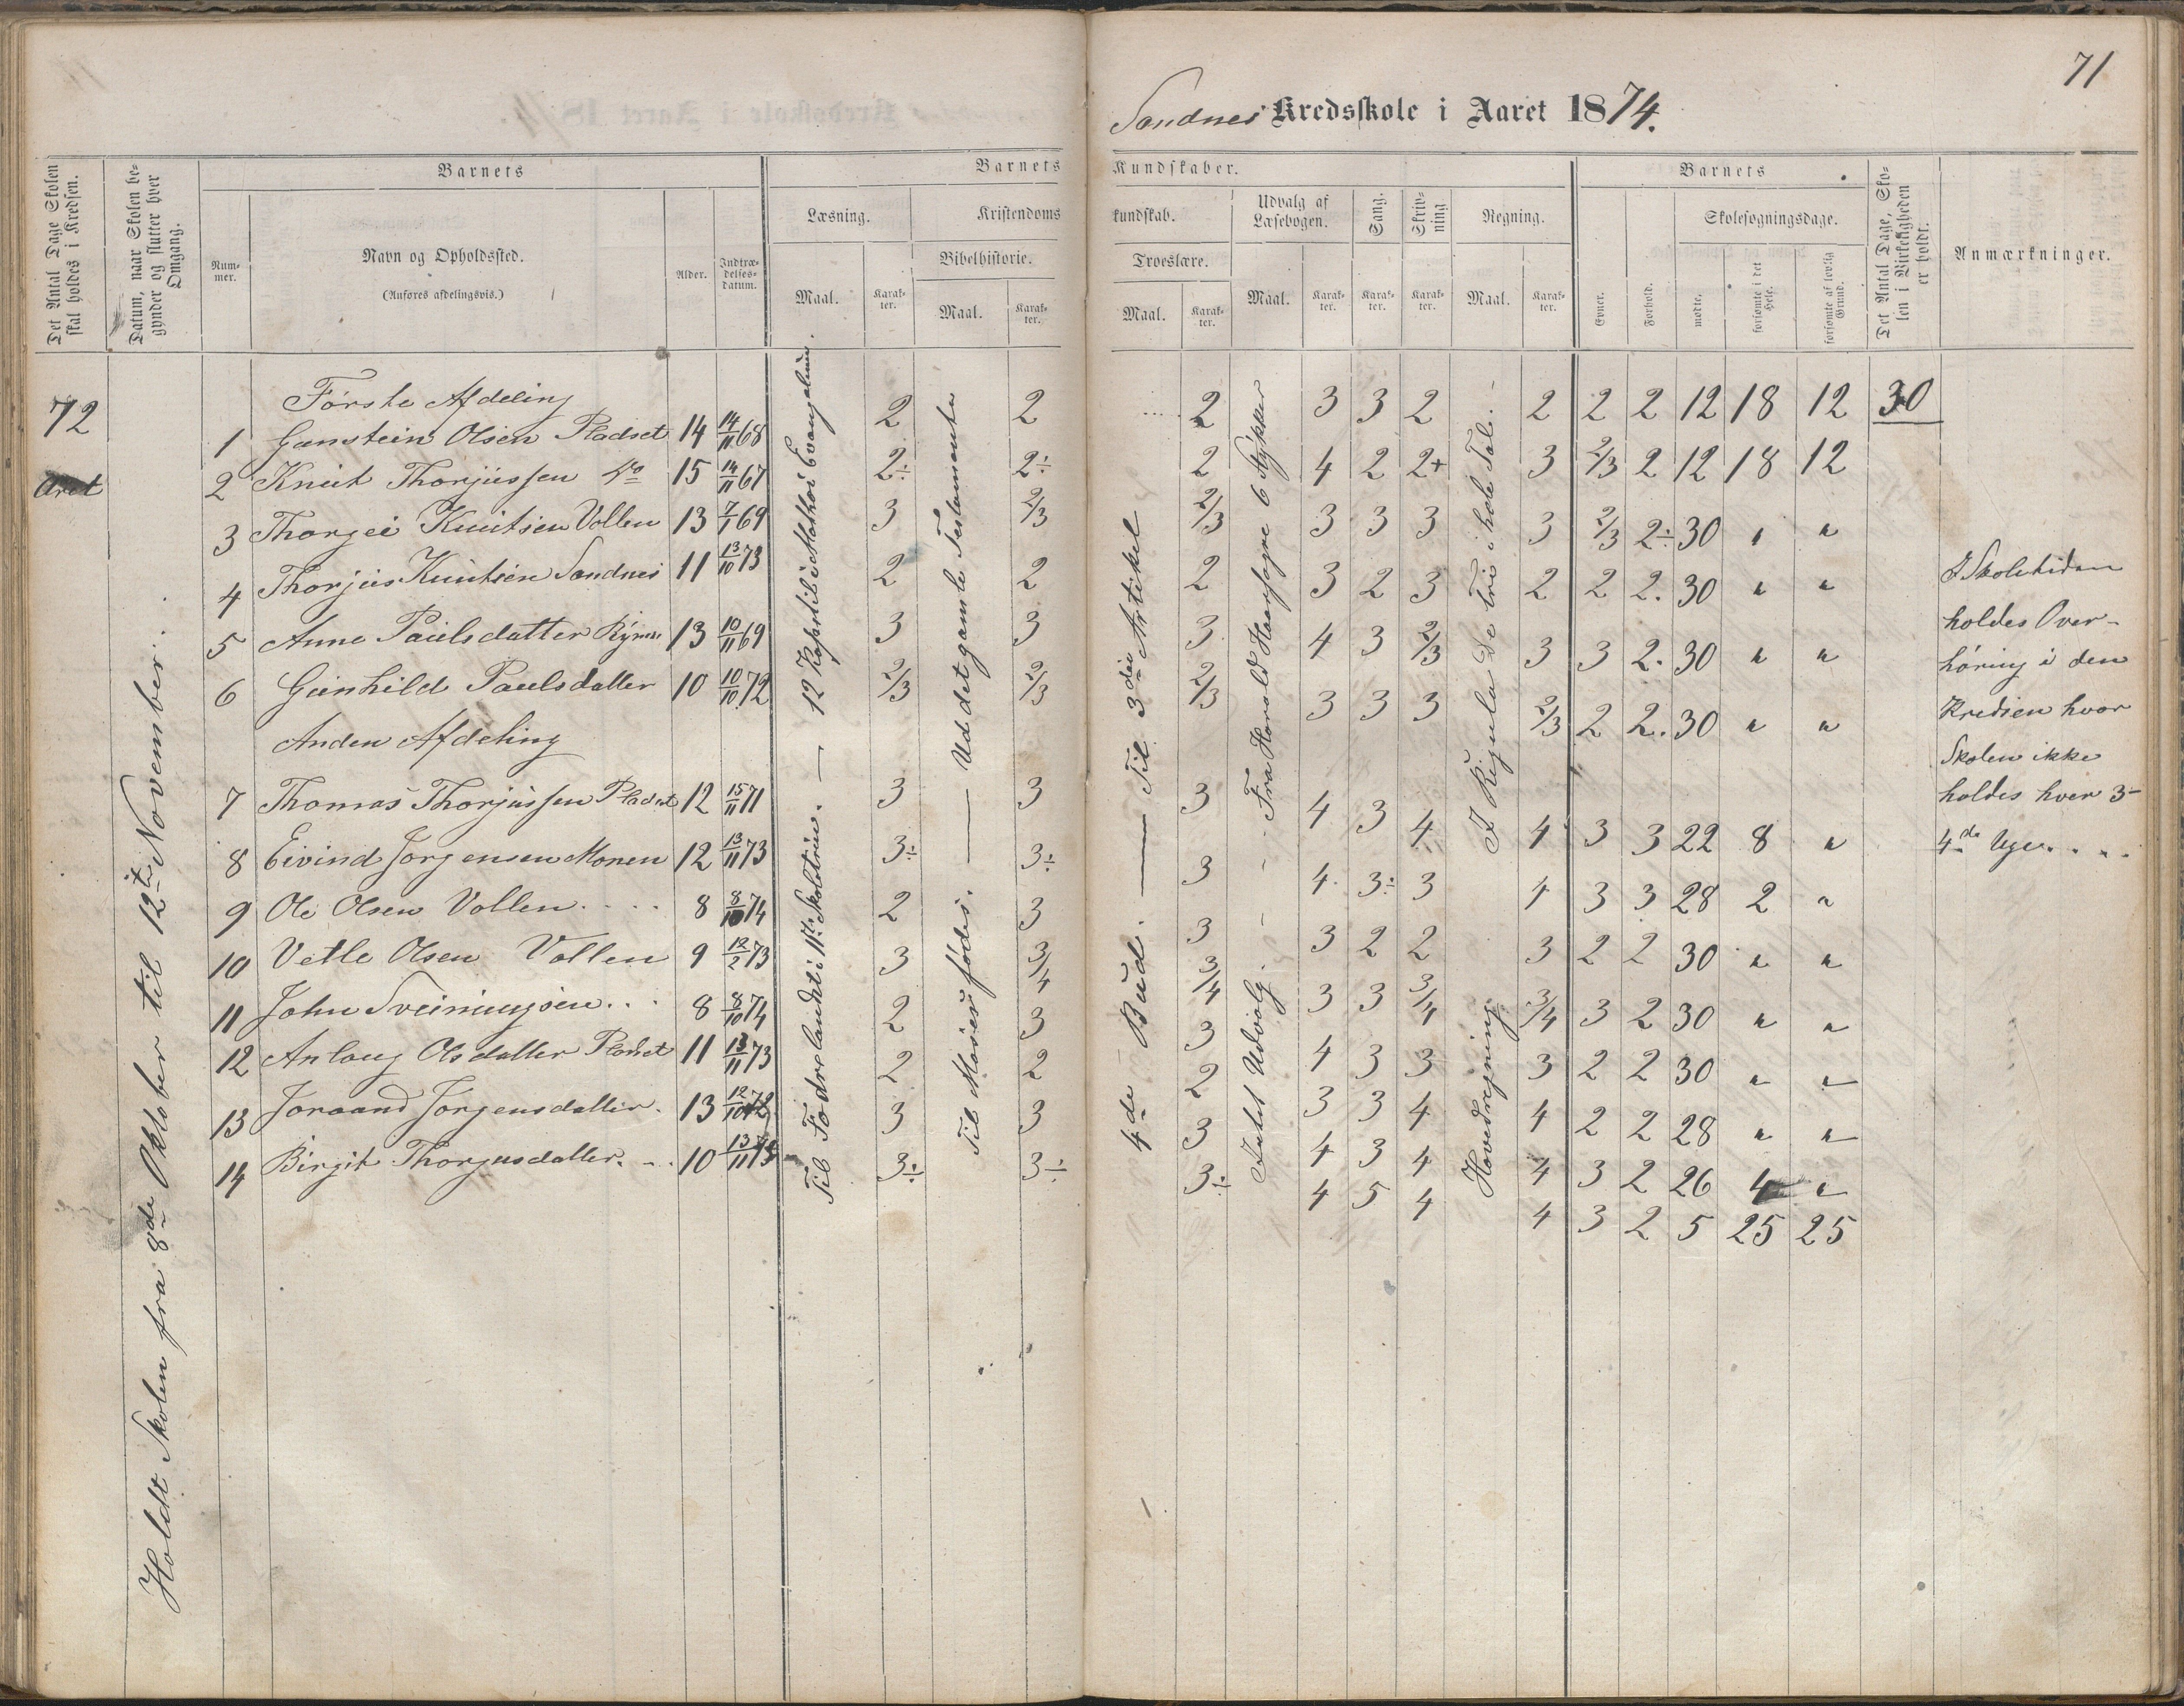 71
Sandnes Kredsskole i Aaret 1874.
Det Antal Dage Skolen skal holdes i Kredsen.
Datum, naar Skolen begynder og slutter hver Omgang.
Barnets
Nummer.
Navn og Opholdssted.
(Anføres afdelingsvis.)
Alder.
Indtrædelsesdatum.
Barnets Kundskaber.
Læsning.
Maal.
Karakter.
Kristendomskundskab.
Bibelhistorie.
Maal.
Karakter.
Troeslære.
Maal.
Karakter.
Udvalg af Læsebogen.
Maal.
Karakter.
Sang.
Karakter.
Skrivning
Karakter.
Regning.
Maal.
Karakter.
Barnets
Evner.
Forhold.
Skolesøgningsdage.
mødte.
forsømte i det Hele.
forsømte af lovlig Grund.
Det Antal Dage, Skolen i Virkeligheden er holdt.
Anmærkninger.
72
Aret
Holdt Skolen fra 8de Oktober til 12te November.
Første Afdeling
1 Gunstein Olsen Pladset 14 14/11 68 2 2 2 3 3 2 2 2 2 12 18 12 30
2 Knut Thorjussen do 15 14/11 67 2÷ 2÷ 2 4 2 2+ 3 2/3 2 12 18 12
3 Thorgei Knutsen Vollen 13 7/1 69 3 2/3 2/3 3 3 3 3 2/3 2÷ 30 " "
4 Thorjus Knutsen Sandnes 11 13/10 73 2 2 2 3 2 3 2 2 2. 30 " "
5 Anne Paulsdatter 13 10/11 69 3 3 3 4 3 2/3 3 3 2. 30 " "
6 Gunhild Paulsdatter 10 10/10 72 2/3 2/3 2/3 3 3 3 2/3 2 2. 30 " "
Anden Afdeling
7 Thomas Thorjussen Pladset 12 15/11 71 3 3 3 4 3 4 4 3 3 22 8 "
8 Eivind Jorgensen Monen 12 13/11 73 3÷ 3÷ 3 4. 3÷ 3 4 3 3 28 2 "
9 Ole Olsen Vollen 8 8/10 74 2 3 3 3 2 2 3 2 2 30 " "
10 Vetle Olsen Vollen 9 12/2 73 3 3/4 3/4 3 3 3/4 3/4 3 2 30 " "
11 John Sveinungsen 8 8/10 74 2 3 3 4 3 3 3 2 2 30 " "
12 Anlaug Olsdatter Pladset 11 13/11 73 2 2 2 3 3 4 4 2 2 28 " "
13 Joraand Jorgensdatter. 13 12/10 72 3 3 3 4 3 4 4 3 2 26 4 "
14 Birgit Thorjusdatter. 10 13/11 73 3÷ 3÷ 3÷ 4 5 4 4 3 2 5 25 25
Til Fædrelandet i 11te Skoletrin. — 12 Kapitel i Mathæi Evangelium.
Til Moses fødes. — Ud det gamle Testamente
4de Bud. — Til 3die Artikel
Intet Udvalg. - - - Fra Harald Haarfagre 6 Stykker
Hovedregning I Regula De Tri i hele Tal. -
I Skoletiden
holdes Over-
høring i den
Kredsen hvor
Skolen ikke
holdes hver 3-
4de Uge.